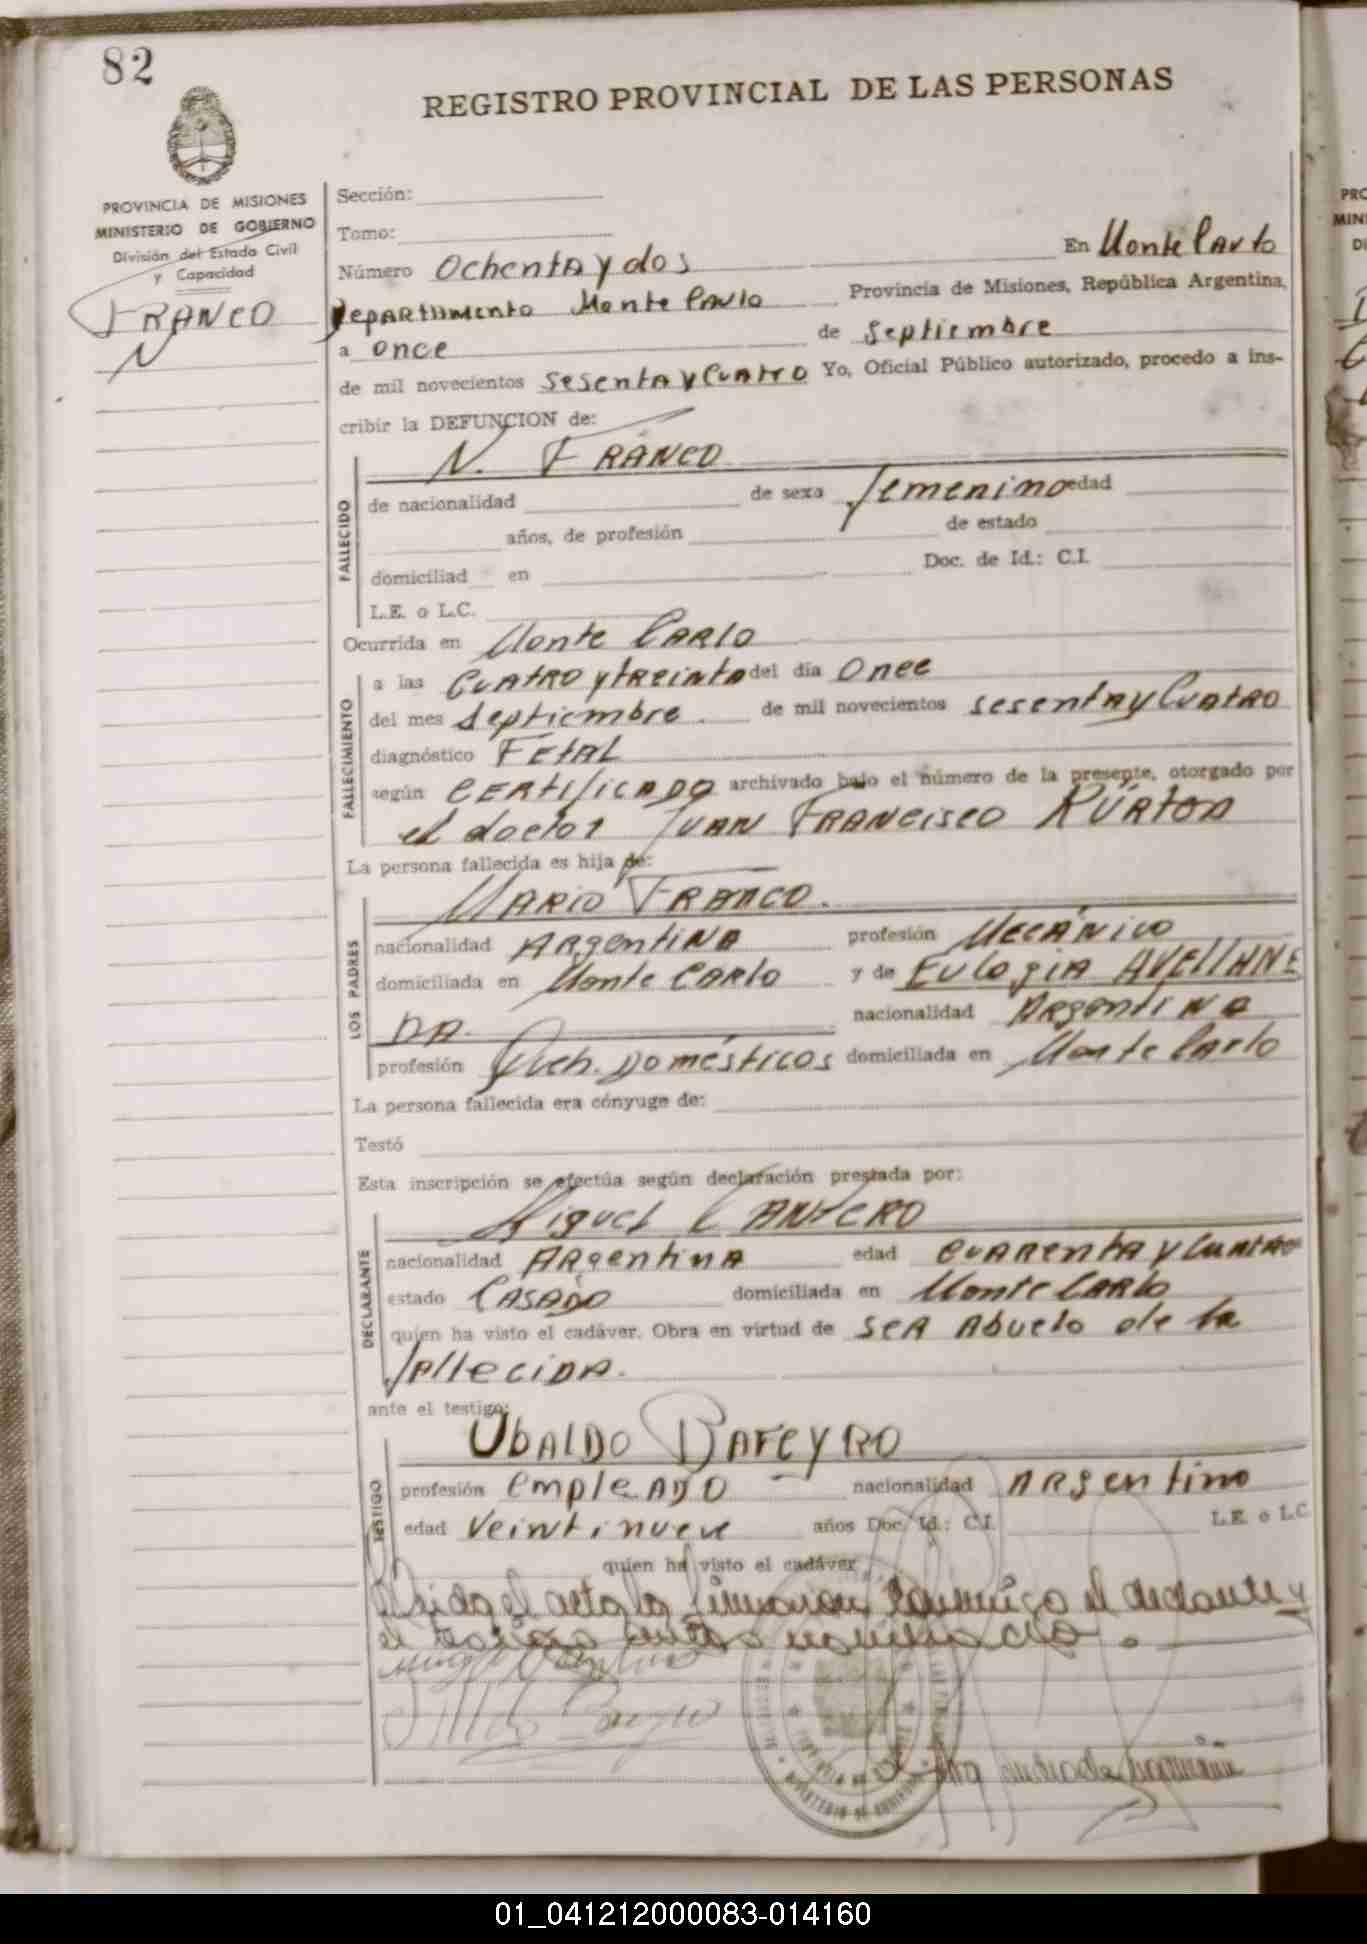 82
REGISTRO PROVINCIAL DE LAS PERSONAS
PROVINCIA DE MISIONES
MINISTERIO DE GOBIERNO
División del Estado Civil
y Capacidad
FRANCO
N
Sección:
Tomo:
Número Ochenta y dos En Monte Carlo
Departamento Monte Carlo Provincia de Misiones, República Argentina,
a once de Septiembre
de mil novecientos Sesenta y Cuatro Yo, Oficial Público autorizado, procedo a ins-
cribir la DEFUNCION de:
N. FRANCO
FALLECIDO
de nacionalidad de sexo femenino edad
años, de profesión de estado
domiciliad en Doc. de Id.: C.I.
L.E. o L.C.
Ocurrida en Monte Carlo
FALLECIMIENTO
a las Cuatro y treinta del día Once
del mes Septiembre. de mil novecientos sesenta y Cuatro
diagnóstico Fetal
según Certificado archivado bajo el número de la presente, otorgado por
el doctor Juan Francisco
La persona fallecida es hija de:
MARIO FRANCO.
LOS PADRES
nacionalidad Argentina profesión Mecánico
domiciliada en Monte Carlo y de Eulogia AVELLANE
DA. nacionalidad Argentina
profesión Queh. Domésticos domiciliada en Monte Carlo
La persona fallecida era cónyuge de:
Testó
Esta inscripción se efectúa según declaración prestada por:
Miguel CANTERO
DECLARANTE
nacionalidad Argentina edad cuarenta y Cuatro
estado Casado domiciliada en Monte Carlo
quien ha visto el cadáver. Obra en virtud de ser Abuelo de la
fallecida.
ante el testigo:
Ubaldo BAREYRO
TESTIGO
profesión empleado nacionalidad Argentino
edad Veintinueve años Doc. Id.: C.I. L.E. o L.C.
quien ha visto el cadáver
el acta la conmigo el y
el testigo
01_041212000083-014160